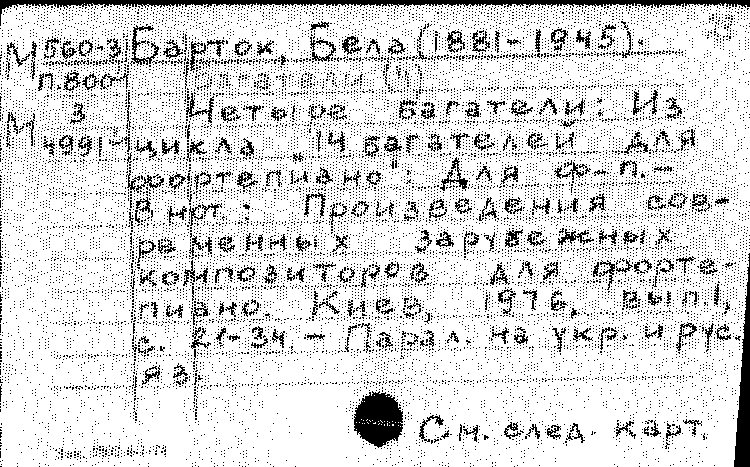 М 560-3 Барток, Бела (1881-1945).
п.800 Багатели (4)
М 3 Четыре багатели: Из
4991 цикла "14 багателей для
фортепиано": Для ф-п. -
В нот.: Произведения сов-
ременных зарубежных
композиторов для форте-
пиано. Киев, 1976, вып.1,
с. 21-34. - Парал. на укр. и рус.
яз.
См. след. карт.